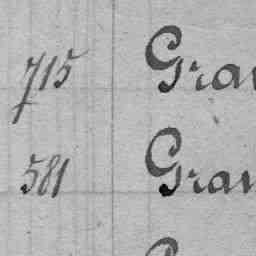 715 Gra
581 Gra